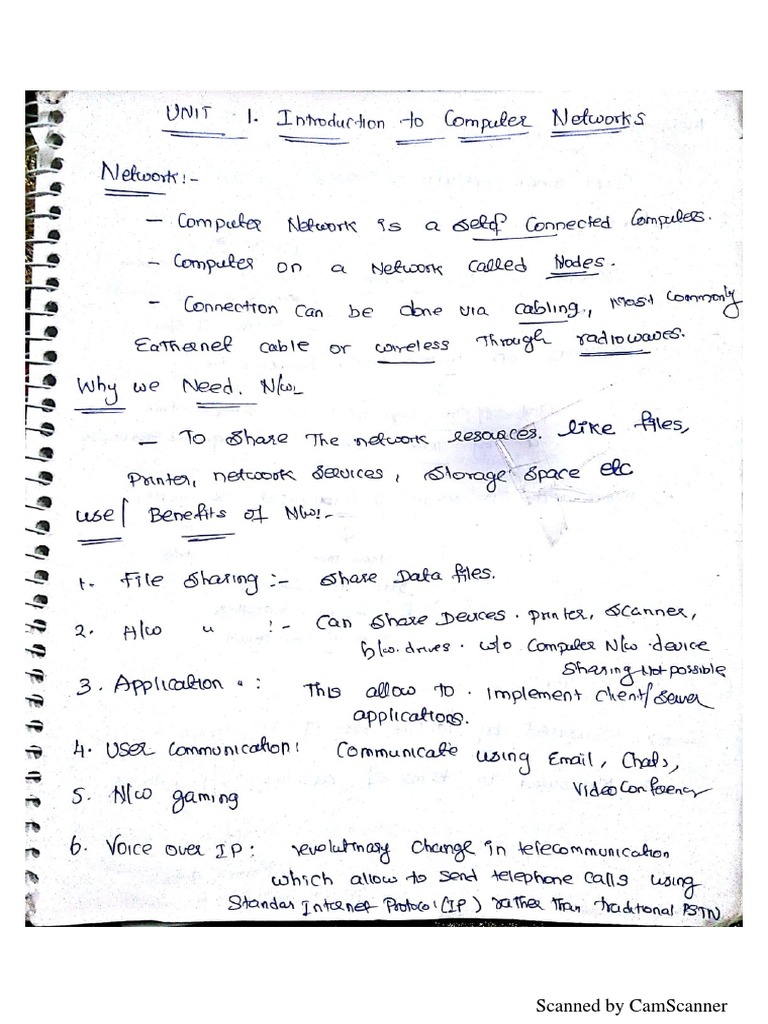 UNIT 1. Introduction to Computer Networks
Network:-
- Computer Network is a set of Connected Computers.
- Computer on a Network called Nodes.
- Connection can be done via cabling, Most Commonly
Eathernet cable or wireless Through radiowaves.
Why we Need. N/w-
- To Share The network resources. like files,
Printer, network services, Storage Space etc
use/ Benefits of N/w:-
1. File Sharing :- Share Data files.
2. H/w " :- Can Share Devices. printer, Scanner,
h/w. drives. w/o Computer N/w device
Sharing Not possible
3. Application " : This allow to implement Client/Server
applications.
4. User Communication: Communicate using Email, Chats,
Video Conferency
5. N/w gaming
6. Voice over IP: revolutinary Change in telecommunication
which allow to send telephone calls using
Standar Internet Protocol (IP) rather Than traditional PSTN
Scanned by CamScanner